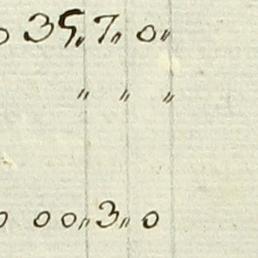 0 35〃 7〃 0〃
〃 〃 〃
0 00〃 3〃 0